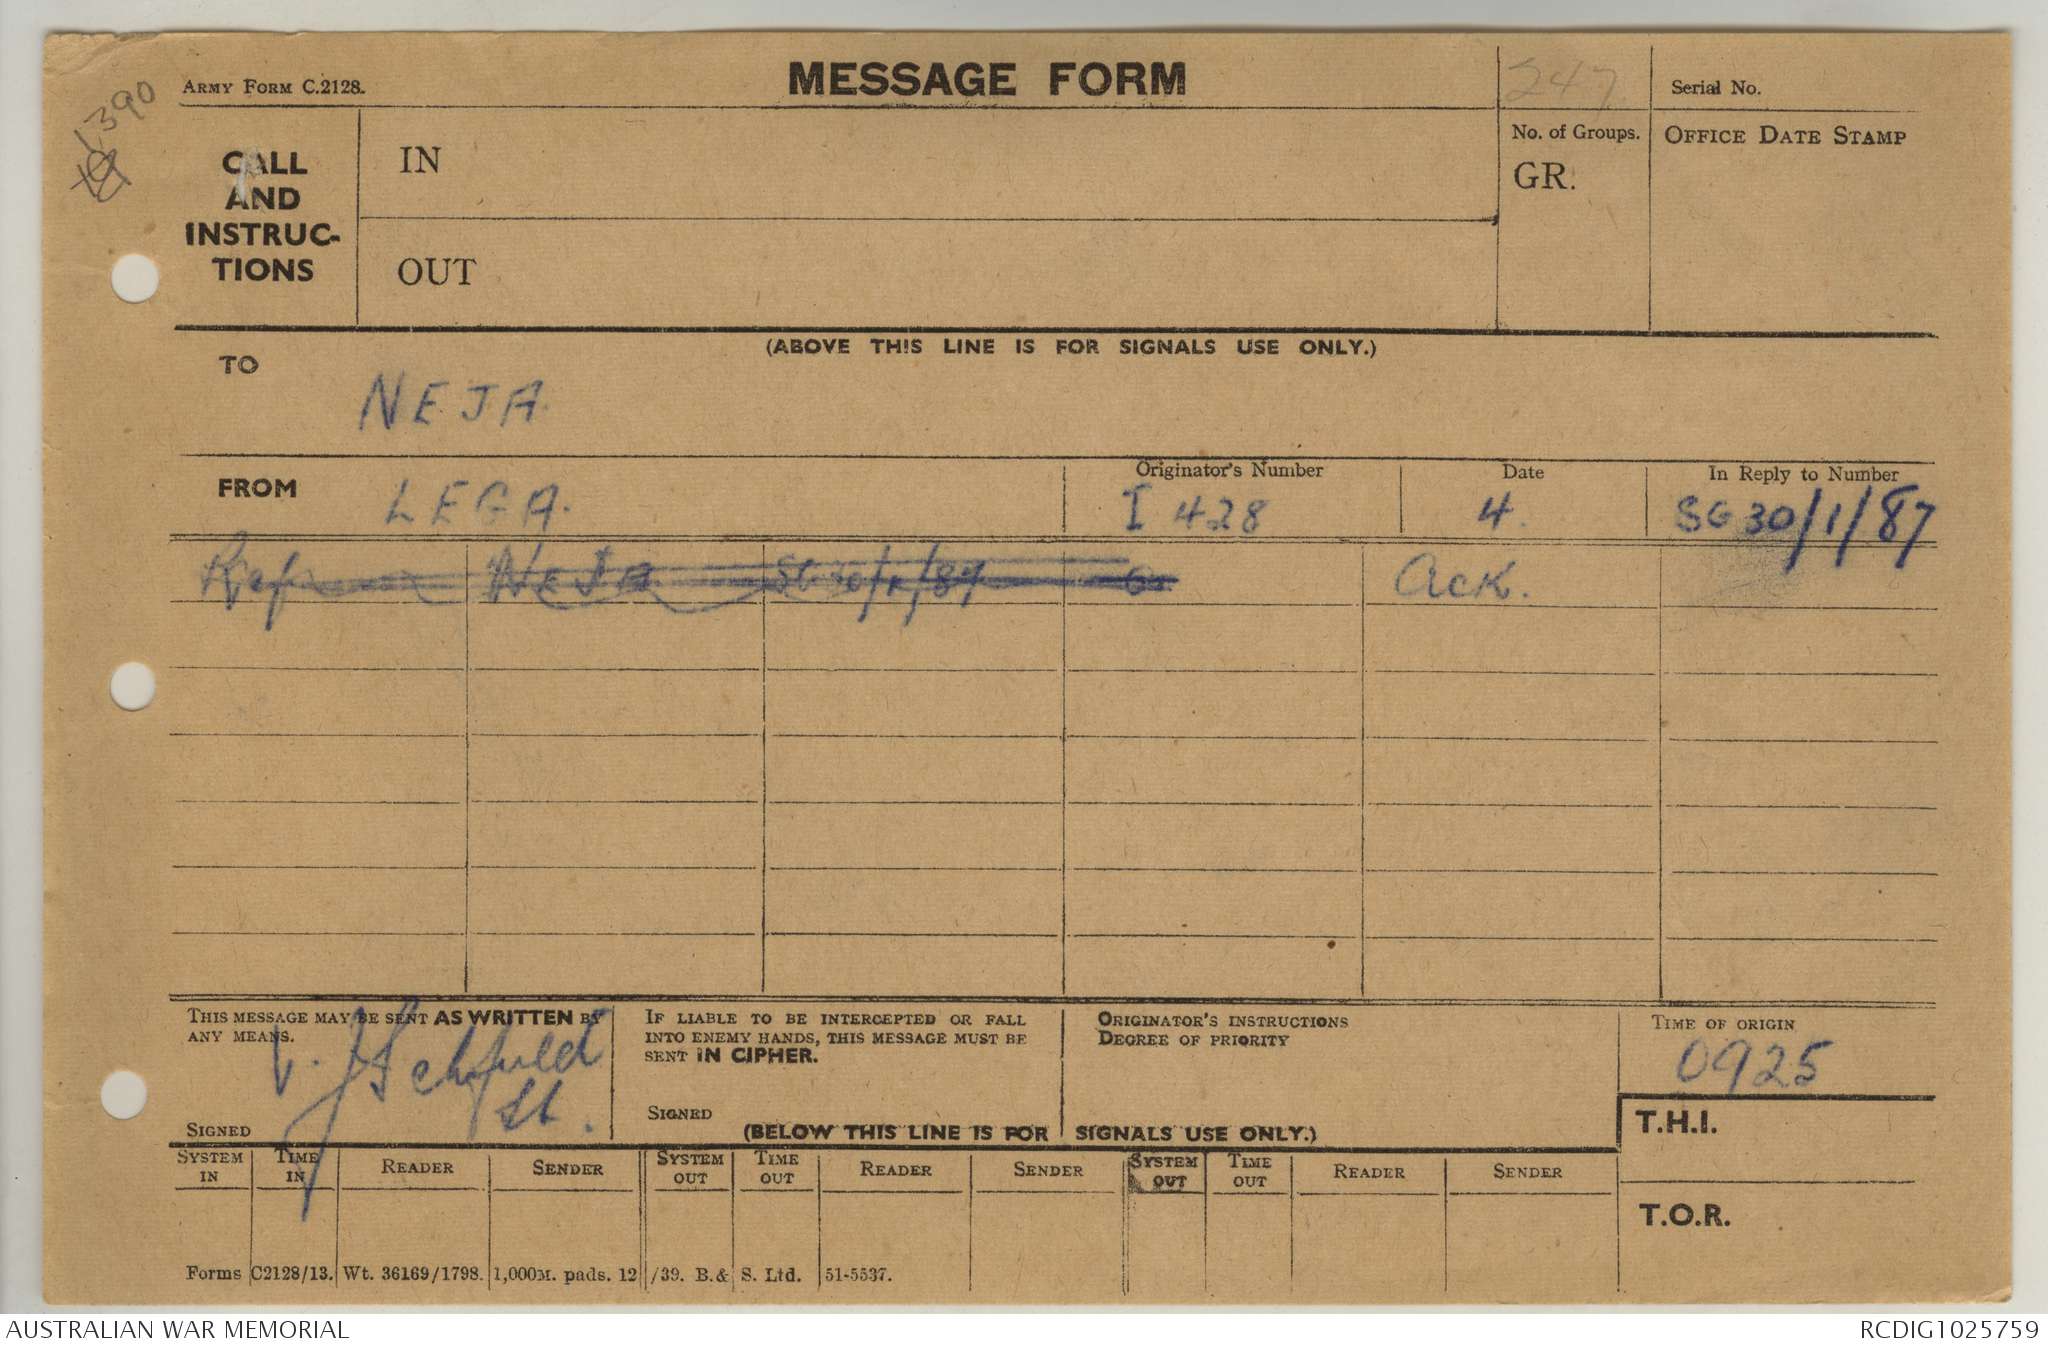 1390
ARMY FORM C.2128.
MESSAGE FORM
247
Serial No.
CALL AND INSTRUC-TIONS
IN
OUT
No. of Groups.
GR.
OFFICE DATE STAMP
(ABOVE THIS LINE IS FOR SIGNALS USE ONLY.)
TO
NEJA.
FROM
LEGA.
Originator's Number
I 428
Date
4.
In Reply to Number
SG30/1/87
Ref NEJA SG 30/1/87 Ack.
THIS MESSAGE MAY BE SENT AS WRITTEN BY
ANY MEANS.
Lt.
SIGNED
IF LIABLE TO BE INTERCEPTED OR FALL
INTO ENEMY HANDS, THIS MESSAGE MUST BE
SENT IN CIPHER.
SIGNED
ORIGINATOR'S INSTRUCTIONS
DEGREE OF PRIORITY
TIME OF ORIGIN
0925
(BELOW THIS LINE IS FOR SIGNALS USE ONLY.)
T.H.I.
T.O.R.
SYSTEM IN TIME IN READER SENDER SYSTEM OUT TIME OUT READER SENDER SYSTEM OUT TIME OUT READER SENDER
Forms C2128/13. Wt. 36169/1798. 1,000M. pads. 12/39. B. & S. Ltd. 51-5537.
AUSTRALIAN WAR MEMORIAL
RCDIG1025759